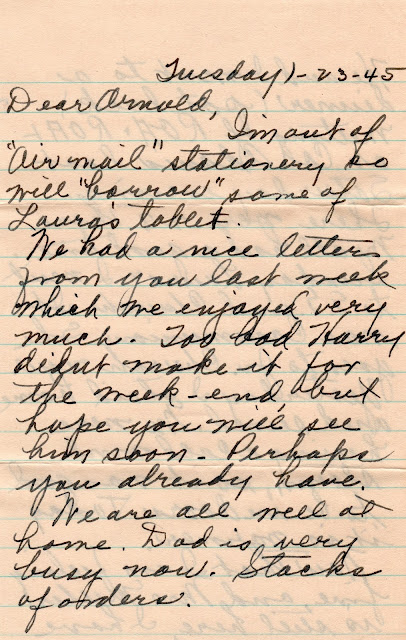 Tuesday 1-23-45
Dear Arnold,
I'm out of
"air mail" stationery so
will "borrow" some of
Laura's tablet.
We had a nice letter
from you last week
which we enjoyed very
much. Too bad Harry
didnt make it for
the week-end, but
hope you will see
him soon - Perhaps
you already have.
We are all well at
home. Dad is very
busy now. Stacks
of orders.